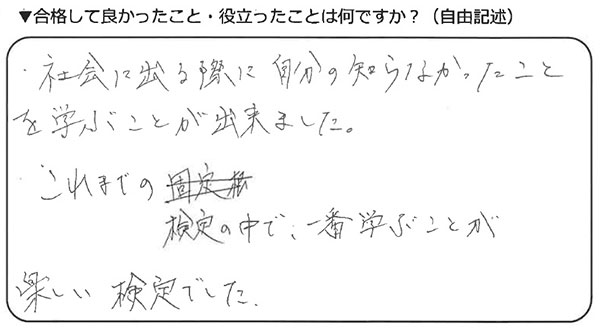 ▼合格して良かったこと・役立ったことは何ですか？（自由記述）
・社会に出る際に自分の知らなかったこと
を学ぶことが出来ました。
・これまでの
検定の中で、一番学ぶことが
楽しい検定でした。